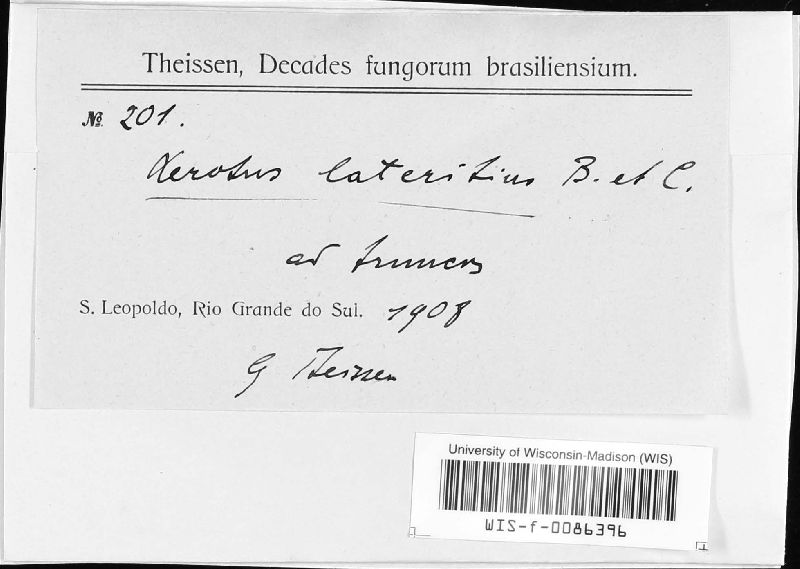 Theissen, Decades fungorum brasiliensium.
№ 201.
Xerotus lateritius B. et C.
ad truncos
S. Leopoldo, Rio Grande do Sul. 1908
G Theissen
University of Wisconsin-Madison (WIS)
WIS-f-0086396